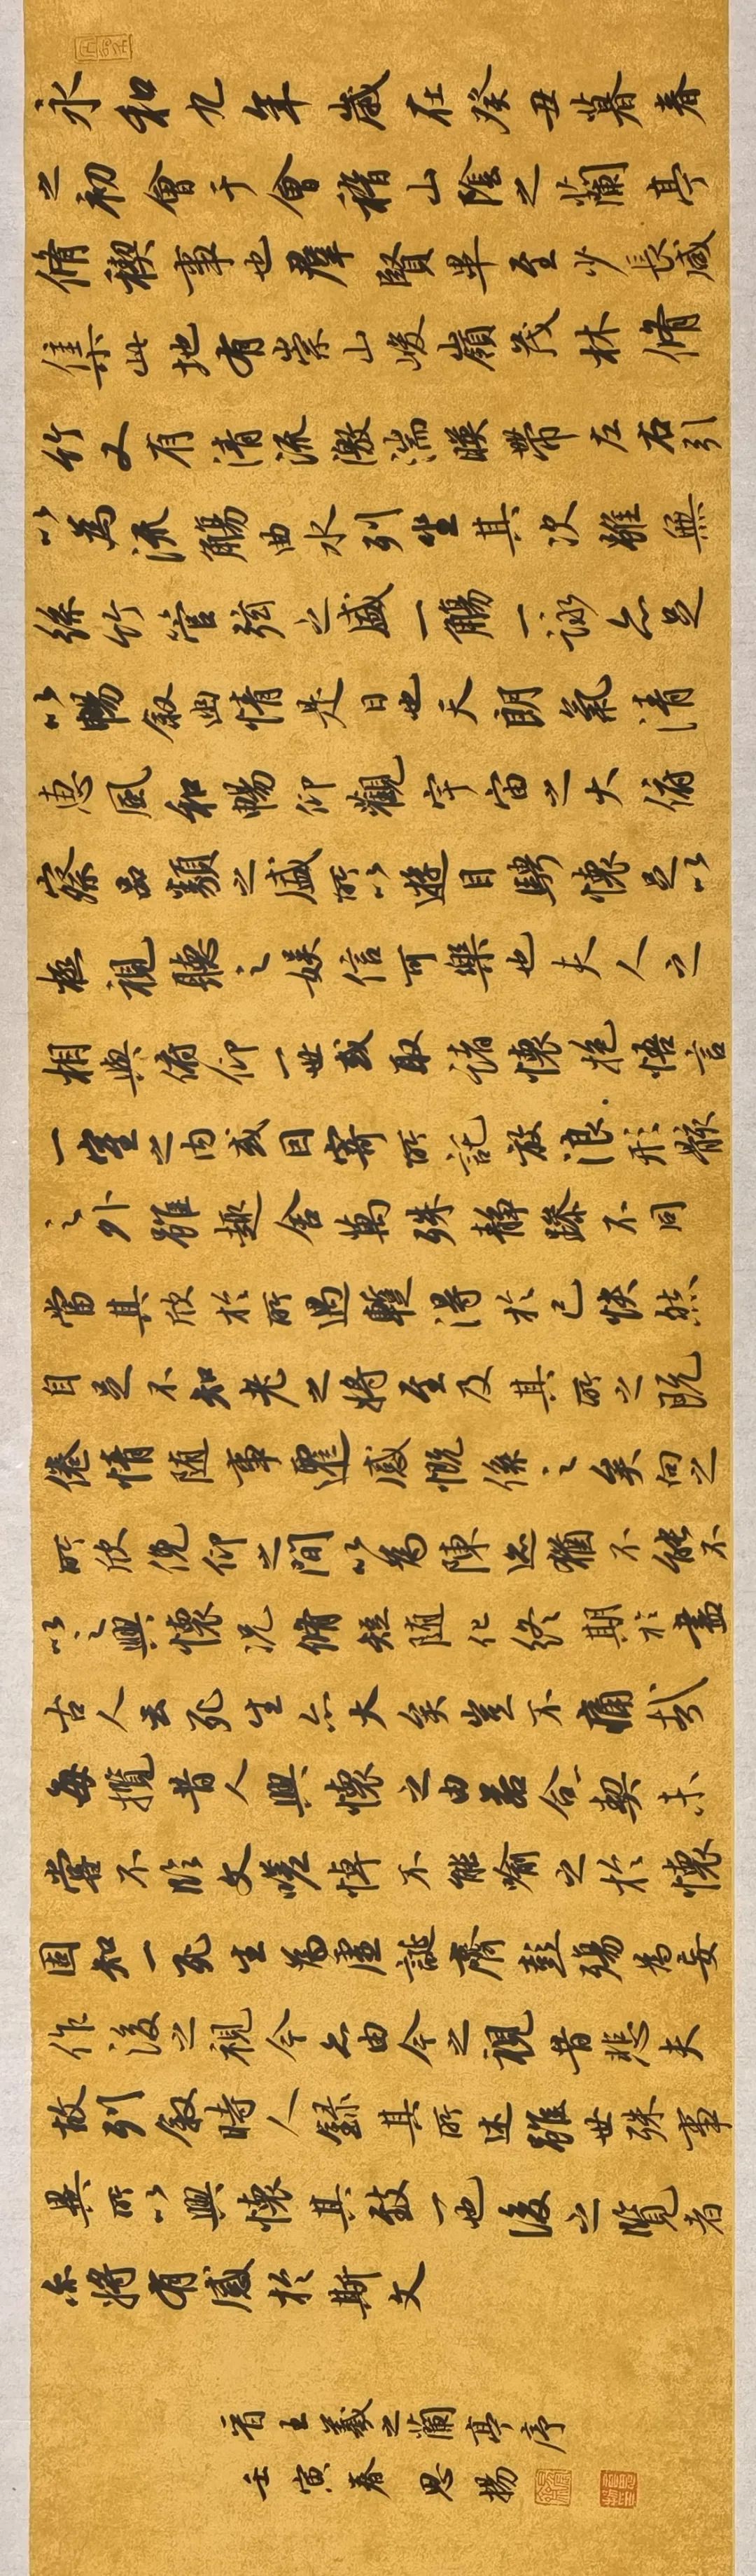 永和九年歲在癸丑暮春
之初會于會稽山陰之蘭亭
脩稧事也羣賢畢至少長咸
集此地有崇山峻嶺茂林脩
竹又有清流激湍暎帶左右引
以為流觴曲水列坐其次雖無
絲竹管弦之盛一觴一詠亦足
以暢敘幽情是日也天朗氣清
惠風和暢仰觀宇宙之大俯
察品類之盛所以遊目騁懷足以
極視聽之娛信可樂也夫人之
相與俯仰一世或取諸懷抱悟言
一室之內或因寄所託放浪形骸
之外雖趣舍萬殊靜躁不同
當其欣於所遇暫得於己快然
自足不知老之將至及其所之既
惓情隨事遷感慨係之矣向之
所欣俛仰之間以為陳迹猶不能不
以之興懷況脩短隨化終期於盡
古人云死生亦大矣豈不痛哉
每攬昔人興懷之由若合一契未
嘗不臨文嗟悼不能喻之於懷
固知一死生為虛誕齊彭殤為妄
作後之視今亦由今之視昔悲夫
故列敘時人錄其所述雖世殊事
異所以興懷其致一也後之覽者
亦將有感於斯文
晉王羲之蘭亭序
壬寅春 思揚